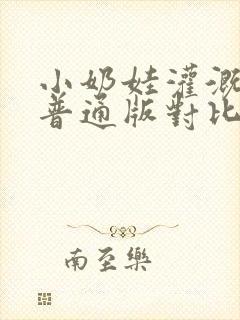 小奶娃灌溉
普通版對比
南至樂